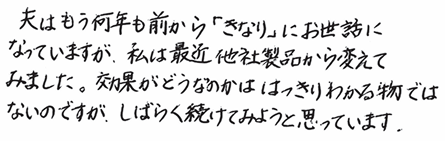 夫はもう何年も前から「きなり」にお世話に
なっていますが、私は最近他社製品から変えて
みました。効果がどうなのかは はっきりわかる物では
ないのですが、しばらく続けてみようと思っています.